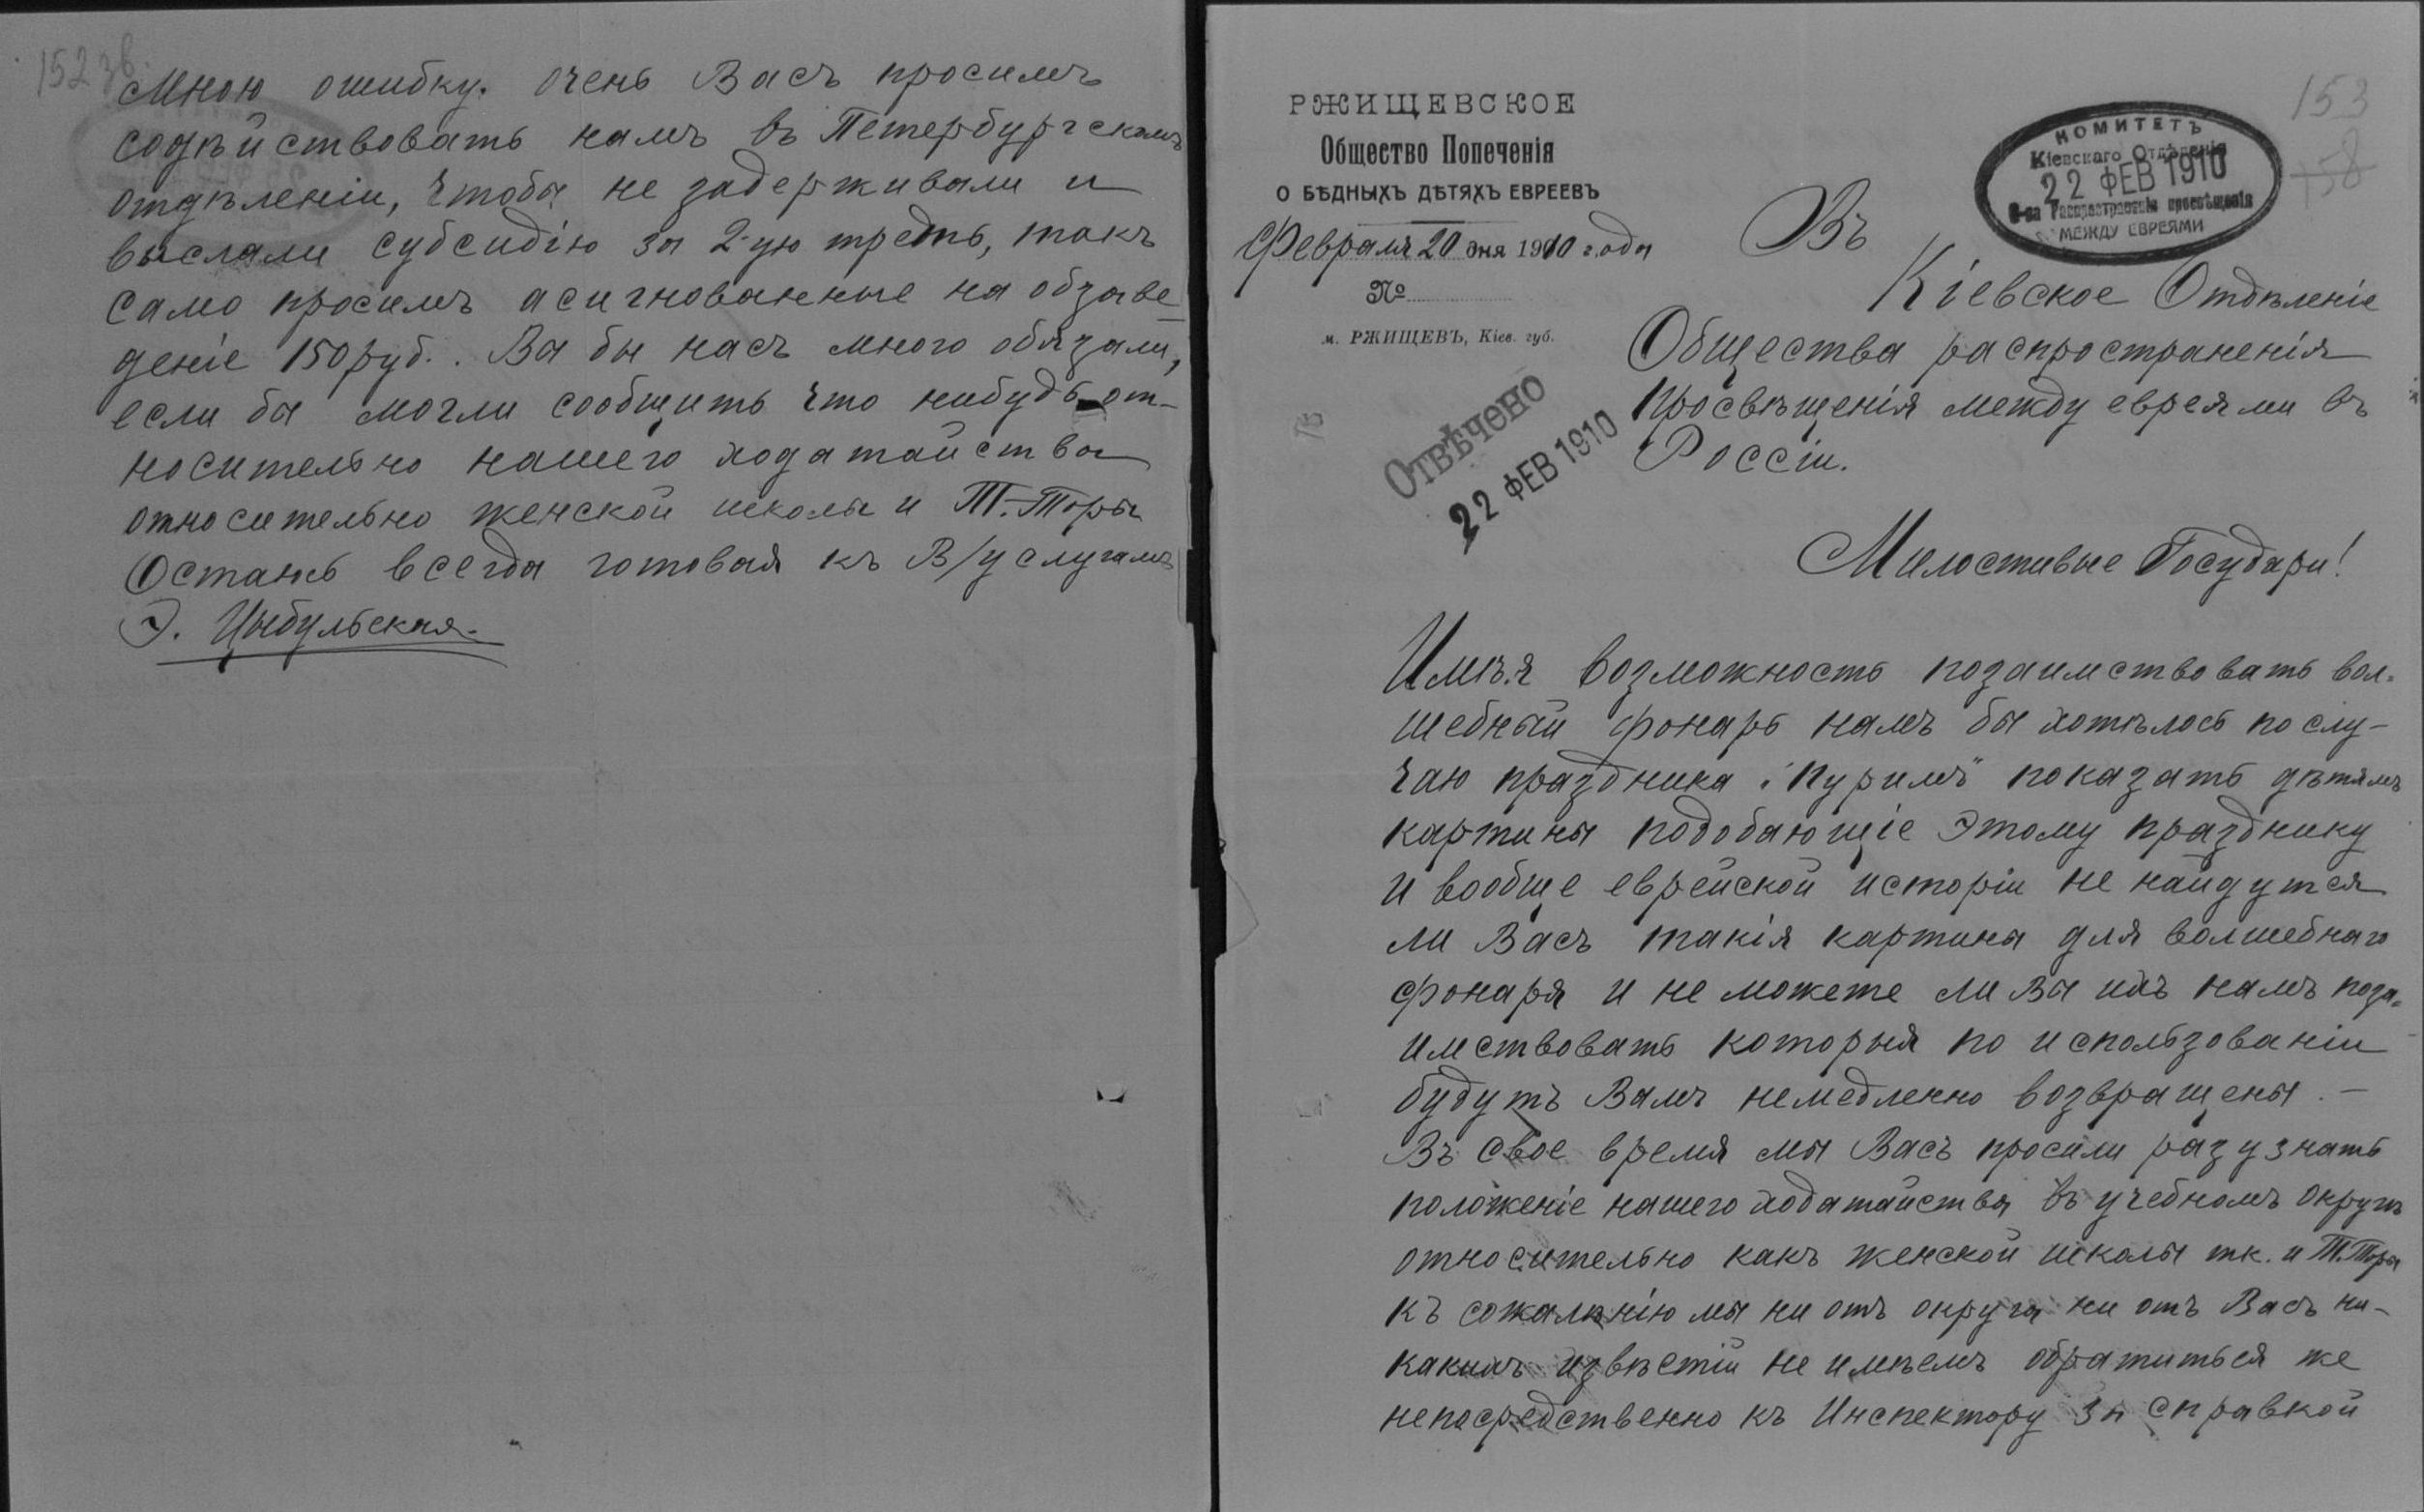 152 зв.
Мною ошибку. Очень Васъ просимъ
содѣйствовать намъ въ Петербургскомъ
отдѣленіи, чтобы не задерживали и
выслали субсидію за 2-ую треть, такъ
само просимъ асигнованные на обзаве-
деніе 150 руб.. Вы бы насъ много обязали,
если бы могли сообщить что нибудь от-
носительно нашего ходатайства
относительно женской школы и Т.-Торы
Остаюсь всегда готовая къ В/услугамъ
Э. Цыбульская.
153
158
РЖИЩЕВСКОЕ
Общество Попеченія
О БѢДНЫХЪ ДѢТЯХЪ ЕВРЕЕВЪ
Февраля 20 дня 1910 года
№
м. РЖИЩЕВЪ, Кіев. губ.
КОМИТЕТЪ
Кіевскаго Отдѣленія
22 ФЕВ 1910
О-ва Распространенія просвѣщенія
МЕЖДУ ЕВРЕЯМИ
Отвѣчено
22 ФЕВ 1910
Въ
Кіевское Отдѣленіе
Общества распространенія
просвѣщенія между евреями въ
Россіи.
Милостивые Государи!
Имѣя возможность позаимствовать вол-
шебный фонарь намъ бы хотѣлось по слу-
чаю праздника "Пуримъ" показать дѣтямъ
картины подобающіе этому празднику
и вообще еврейской исторіи не найдутся
ли Васъ такія картины для волшебнаго
фонаря и не можете ли Вы ихъ намъ поза-
имствовать которыя по использованіи
будутъ Вамъ немедленно возвращены. –
Въ свое время мы Васъ просили разузнать
положеніе нашего ходатайства въ учебномъ округѣ
относительно какъ женской школы тк. и Т.Торы
къ сожалѣнію мы ни отъ округа ни отъ Васъ ни-
какихъ извѣстій не имѣемъ обратиться же
непосредственно къ Инспектору за справкой